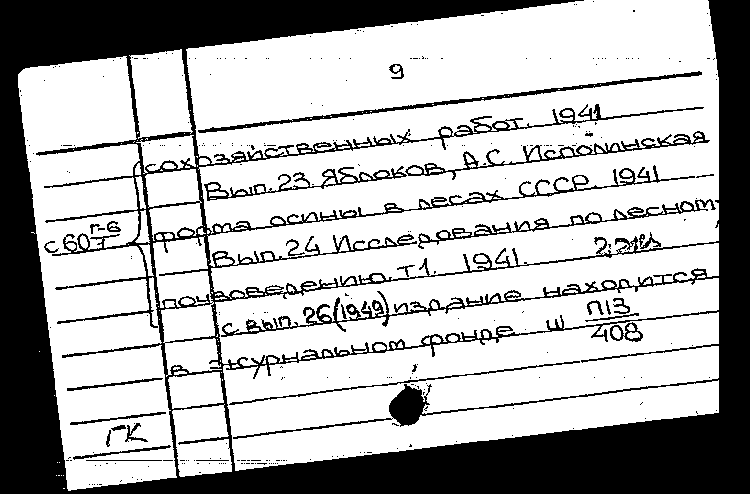 9
сохозяйственных работ. 1941
Вып. 23. Яблоков, А.С. Исполинская
форма осины в лесах СССР. 1941
Вып. 24 Исследования по лесному
с 607 п-6
почвоведению. т 1. 1941.
с вып. 26 (1949) издание находится
в журнальном фонде ш П13/408
ГК